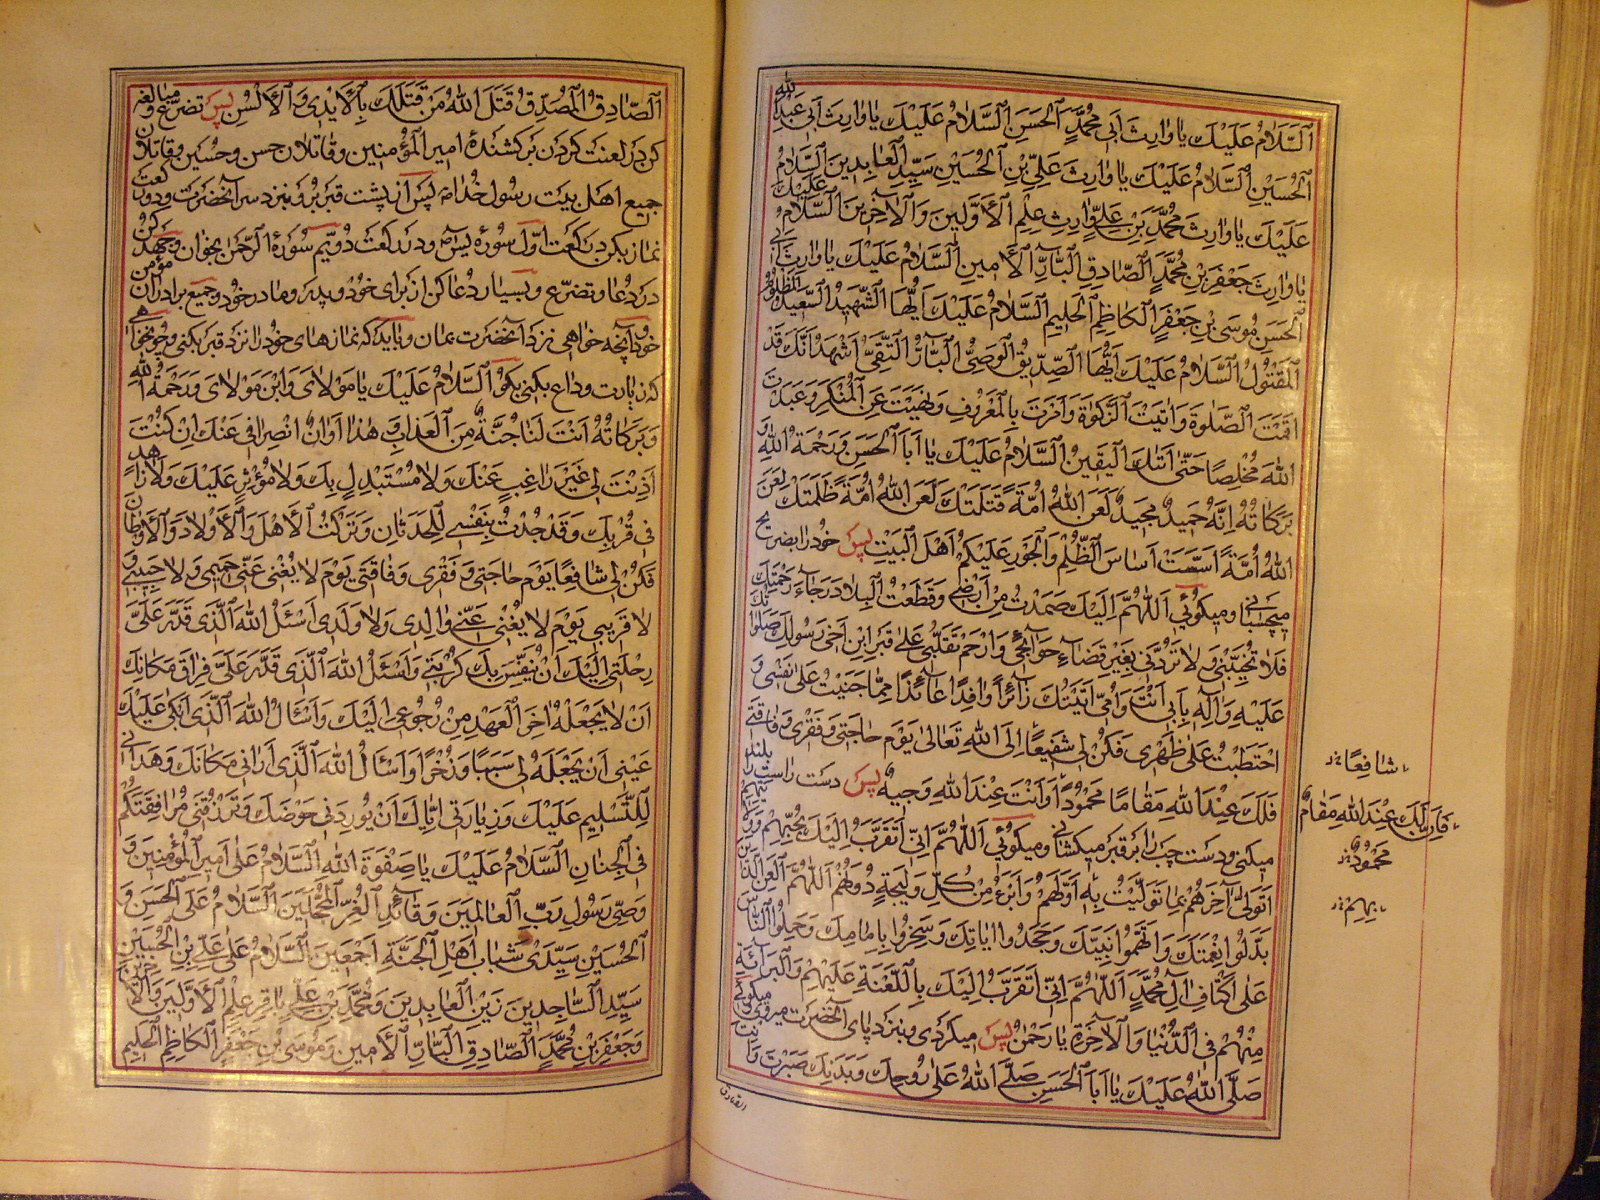 لله
اَلسَّلامُ عَلَيْكَ ياوارِثَ اَبي مُحَمَّدٍ اَلْحَسَنِ اَلسَّلامُ عَلَيْكَ ياوارِثَ اَبي عَبْدِ
اَلْحُسَيْنِ اَلسَّلامُ عَلَيْكَ ياوارِثَ عَلِيِّ بْنِ الْحُسَيْنِ سَيِّدِ الْعابِدينَ اَلسَّلامُ
عَلَيْكَ ياوارِثَ مُحَمَّدِ بْنِ عَلِيٍّ وارِثِ عِلْمِ الْاَوَّلينَ وَالْاخِرينَ اَلسَّلامُ عَلَيْكَ
ياوارِثَ جَعْفَرِ بْنِ مُحَمَّدٍ اَلصّادِقِ الْبارِّ الْاَمينِ اَلسَّلامُ عَلَيْكَ ياوارِثَ اَبي
اَلْحَسَنِ مُوسَى بْنِ جَعْفَرٍ الْكاظِمِ الْحَليمِ اَلسَّلامُ عَلَيْكَ اَيُّهَا الشَّهيدُ السَّعيدُ الْمَظْلُومُ
اَلْمَقْتُولُ اَلسَّلامُ عَلَيْكَ اَيُّهَا الصِّدّيقُ الْوَصِيُّ الْبارُّ التَّقِيُّ اَشْهَدُ اَنَّكَ قَدْ
اَقَمْتَ الصَّلوةَ وَاتَيْتَ الزَّكوةَ وَاَمَرْتَ بِالْمَعْرُوفِ وَنَهَيْتَ عَنِ الْمُنْكَرِ وَعَبَدْتَ
اللهَ مُخْلِصًا حَتّى اَتيكَ الْيَقينُ اَلسَّلامُ عَلَيْكَ يا اَبَا الْحَسَنِ وَرَحْمَةُ اللهِ وَ
بَرَكاتُهُ اِنَّهُ حَميدٌ مَجيدٌ لَعَنَ اللهُ اُمَّةً قَتَلَتْكَ لَعَنَ اللهُ اُمَّةً ظَلَمَتْكَ لَعَنَ
اللهُ اُمَّةً اَسَّسَتْ اَساسَ الظُّلْمِ وَالْجَوْرِ عَلَيْكُمْ اَهْلَ الْبَيْتِ پس خود را بضریح
میچسبانی و میگوئی اَللّهُمَّ اِلَيْكَ صَمَدْتُ مِنْ اَرْضي وَقَطَعْتُ الْبِلادَ رَجاءَ رَحْمَتِكَ
فَلا تُخَيِّبْني وَلا تَرُدَّني بِغَيْرِ قَضاءِ حَوائِجي وَارْحَمْ تَقَلُّبي عَلى قَبْرِ ابْنِ اَخي رَسُولِكَ صَلَواتُكَ
عَلَيْهِ وَالِهِ بِاَبي اَنْتَ وَاُمّي اَتَيْتُكَ زائِرًا وافِدًا عائِذًا مِمّا جَنَيْتُ عَلى نَفْسي وَ
احْتَطَبْتُ عَلى ظَهْري فَكُنْ لي شَفيعًا اِلَى اللهِ تَعالى يَوْمَ حاجَتي وَفَقْري وَفاقَتي
فَلَكَ عِنْدَ اللهِ مَقامًا مَحْمُودًا وَاَنْتَ عِنْدَ اللهِ وَجيهٌ پس دست راست را بلند
میکنی و دست چپ را بر قبر میکشانی و میگوئی اَللّهُمَّ اِنّي اَتَقَرَّبُ اِلَيْكَ بِحُبِّهِمْ
اَتَوَلّى اخِرَهُمْ بِما تَوَلَّيْتُ بِهِ اَوَّلَهُمْ وَاَبْرَءُ مِنْ كُلِّ وَليجَةٍ دُونَهُمْ اَللّهُمَّ الْعَنِ الَّذينَ
بَدَّلُوا نِعْمَتَكَ وَاتَّهَمُوا نَبِيَّكَ وَجَحَدُوا اياتِكَ وَسَخِرُوا بِاِمامِكَ وَحَمَلُوا النّاسَ
عَلى اَكْتافِ الِ مُحَمَّدٍ اَللّهُمَّ اِنّي اَتَقَرَّبُ اِلَيْكَ بِاللَّعْنَةِ عَلَيْهِمْ وَالْبَرائَةِ
مِنْهُمْ فِي الدُّنْيا وَالْاخِرَةِ يا رَحْمنُ پس میکردی و بنزد پای آنحضرت میروی و میگوئی
صَلَّى اللهُ عَلَيْكَ يا اَبَا الْحَسَنِ صَلَّى اللهُ عَلى رُوحِكَ وَبَدَنِكَ صَبَرْتَ وَاَنْتَ
شافِعًا
فَاِنَّ لَكَ عِنْدَ اللهِ مَقامٌ
مَحْمُودٌ
بهم
الصادق
اَلصّادِقُ الْمُصَدِّقُ قَتَلَ اللهُ مَنْ قَتَلَكَ بِالْاَيْدي وَالْاَلْسُنِ پس تضرّع و مبالغه
کن در لعنت کردن بر کشندهٔ امیر المؤمنین و قاتلان حسن و حسین و قاتلان
جمیع اهل بیت رسول خدا ص پس از پشت قبر برو بنزد سر آنحضرت و دو رکعت
نماز بکن در رکعت اوّل سورهٔ یس و در رکعت دویّم سورهٔ الرحمن بخوان و جهد کن
در دعا و تضرّع و بسیار دعا کن از برای خود و پدر و مادر خود و جمیع برادران مؤمن
خود و آنچه خواهی نزد آنحضرت بمان و باید که نمازهای خود را نزد قبر بکنی و چون خواهی
که زیارت وداع بکنی بگو اَلسَّلامُ عَلَيْكَ يا مَوْلايَ وَابْنَ مَوْلايَ وَرَحْمَةُ اللهِ
وَبَرَكاتُهُ اَنْتَ لَنا جُنَّةٌ مِنَ الْعَذابِ وَهذا اَوانُ انْصِرافي عَنْكَ اِنْ كُنْتَ
اَذِنْتَ لي غَيْرَ راغِبٍ عَنْكَ وَلا مُسْتَبْدِلٍ بِكَ وَلا مُؤْثِرٍ عَلَيْكَ وَلا زاهِدٍ
في قُرْبِكَ وَقَدْ جُدْتُ بِنَفْسي لِلْحَدَثانِ وَتَرَكْتُ الْاَهْلَ وَالْاَوْلادَ وَالْاَوْطانَ
فَكُنْ لي شافِعًا يَوْمَ حاجَتي وَفَقْري وَفاقَتي يَوْمَ لا يُغْني عَنّي حَميمي وَلا حَبيبي وَ
لا قَريبي يَوْمَ لا يُغْني عَنّي والِدي وَلا وَلَدي اَسْئَلُ اللهَ الَّذي قَدَّرَ عَلَيَّ
رِحْلَتي اِلَيْكَ اَنْ يُنَفِّسَ بِكَ كُرْبَتي وَاَسْئَلُ اللهَ الَّذي قَدَّرَ عَلَيَّ فِراقَ مَكانِكَ
اَنْ لا يَجْعَلَهُ اخِرَ الْعَهْدِ مِنْ رُجُوعي اِلَيْكَ وَاَسْأَلُ اللهَ الَّذي اَبْكى عَلَيْكَ
عَيْني اَنْ يَجْعَلَهُ لي سَبَبًا وَذُخْرًا وَاَسْأَلُ اللهَ الَّذي اَراني مَكانَكَ وَهَداني
لِلتَّسْليمِ عَلَيْكَ وَزِيارَتي اِيّاكَ اَنْ يُورِدَني حَوْضَكَ وَيَرْزُقَني مُرافَقَتَكُمْ
فِي الْجِنانِ اَلسَّلامُ عَلَيْكَ يا صَفْوَةَ اللهِ اَلسَّلامُ عَلى اَميرِ الْمُؤْمِنينَ وَ
وَصِيِّ رَسُولِ رَبِّ الْعالَمينَ وَقائِدِ الْغُرِّ الْمُحَجَّلينَ اَلسَّلامُ عَلَى الْحَسَنِ وَ
الْحُسَيْنِ سَيِّدَيْ شَبابِ اَهْلِ الْجَنَّةِ اَجْمَعينَ اَلسَّلامُ عَلى عَلِيِّ بْنِ الْحُسَيْنِ
سَيِّدِ السّاجِدينَ زَيْنِ الْعابِدينَ وَمُحَمَّدِ بْنِ عَلِيٍّ باقِرِ عِلْمِ الْاَوَّلينَ وَالْاخِرينَ
وَجَعْفَرِ بْنِ مُحَمَّدٍ الصّادِقِ الْبارِّ الْاَمينِ وَمُوسَى بْنِ جَعْفَرٍ الْكاظِمِ الْحَليمِ